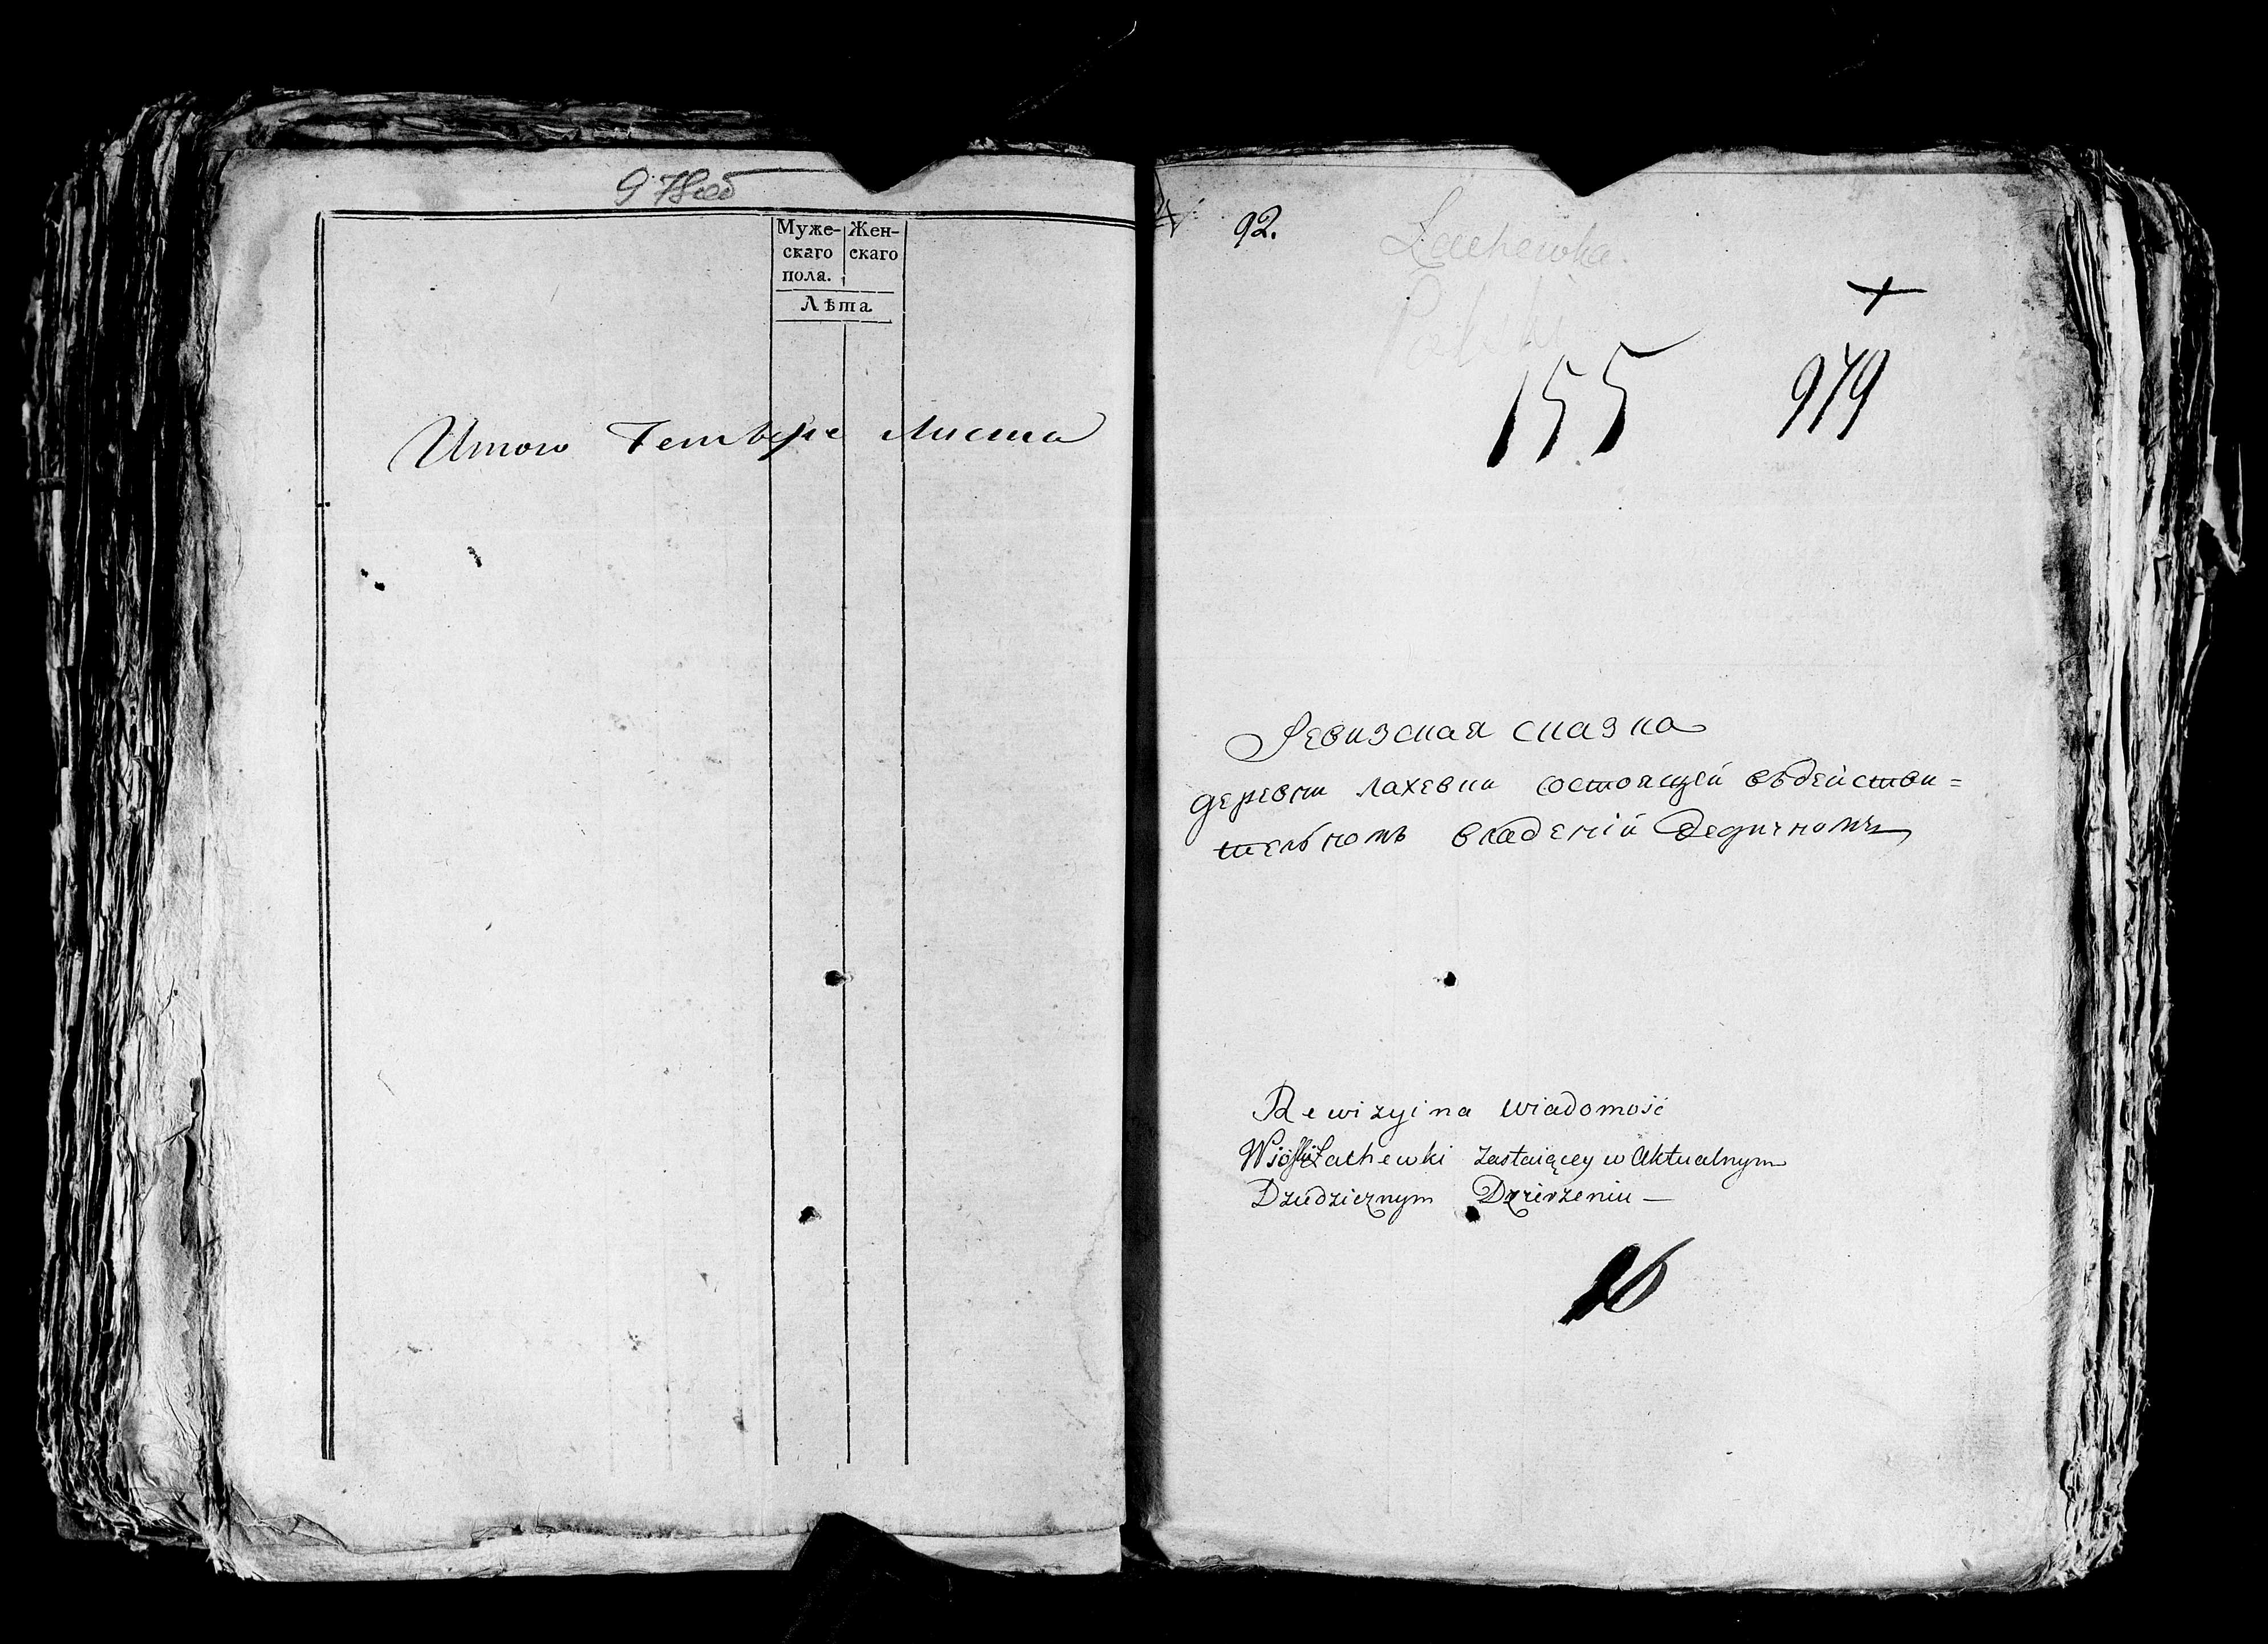 978об
Муже- Жен-
скаго скаго
пола.
Лѣта
Итого Четвере листа
92.
Lachewka
155 979
Ревизская сказка
деревни лахевки состоящей въ действи=
тельномъ владеніи Дедичномъ
Rewizyina wiadomość
Wioski Lachewki zastaiącey w Aktualnym
Dziedzicznym Dzierżeniu —